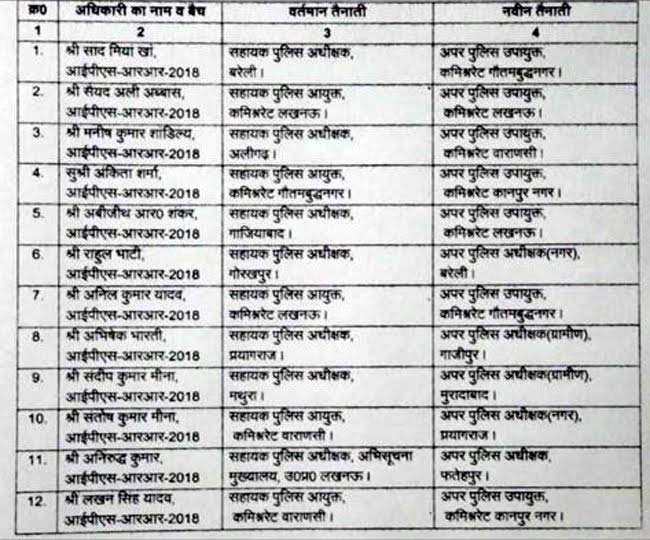 क्र0 अधिकारी का नाम व बैच वर्तमान तैनाती नवीन तैनाती
1 2 3 4
1. श्री साद मियां खां, सहायक पुलिस अधीक्षक, अपर पुलिस उपायुक्त,
आईपीएस-आरआर-2018 बरेली। कमिश्नरेट गौतमबुद्धनगर।
2. श्री सैयद अली अब्बास, सहायक पुलिस आयुक्त, अपर पुलिस उपायुक्त,
आईपीएस-आरआर-2018 कमिश्नरेट लखनऊ। कमिश्नरेट लखनऊ।
3. श्री मनीष कुमार शांडिल्य, सहायक पुलिस अधीक्षक, अपर पुलिस उपायुक्त,
आईपीएस-आरआर-2018 अलीगढ़। कमिश्नरेट वाराणसी।
4. सुश्री अंकिता शर्मा, सहायक पुलिस आयुक्त, अपर पुलिस उपायुक्त,
आईपीएस-आरआर-2018 कमिश्नरेट गौतमबुद्धनगर। कमिश्नरेट कानपुर नगर।
5. श्री अबीजीथ आर0 शंकर, सहायक पुलिस अधीक्षक, अपर पुलिस उपायुक्त,
आईपीएस-आरआर-2018 गाजियाबाद। कमिश्नरेट लखनऊ।
6. श्री राहुल भाटी, सहायक पुलिस अधीक्षक, अपर पुलिस अधीक्षक(नगर),
आईपीएस-आरआर-2018 गोरखपुर। बरेली।
7. श्री अनिल कुमार यादव, सहायक पुलिस आयुक्त, अपर पुलिस उपायुक्त,
आईपीएस-आरआर-2018 कमिश्नरेट लखनऊ। कमिश्नरेट गौतमबुद्धनगर।
8. श्री अभिषेक भारती, सहायक पुलिस अधीक्षक, अपर पुलिस अधीक्षक(ग्रामीण),
आईपीएस-आरआर-2018 प्रयागराज। गाजीपुर।
9. श्री संदीप कुमार मीना, सहायक पुलिस अधीक्षक, अपर पुलिस अधीक्षक(ग्रामीण),
आईपीएस-आरआर-2018 मथुरा। मुरादाबाद।
10. श्री संतोष कुमार मीना, सहायक पुलिस आयुक्त, अपर पुलिस अधीक्षक(नगर),
आईपीएस-आरआर-2018 कमिश्नरेट वाराणसी। प्रयागराज।
11. श्री अनिरुद्ध कुमार, सहायक पुलिस अधीक्षक, अभिसूचना अपर पुलिस अधीक्षक,
आईपीएस-आरआर-2018 मुख्यालय, उ0प्र0 लखनऊ। फतेहपुर।
12. श्री लखन सिंह यादव, सहायक पुलिस आयुक्त, अपर पुलिस उपायुक्त,
आईपीएस-आरआर-2018 कमिश्नरेट वाराणसी। कमिश्नरेट कानपुर नगर।